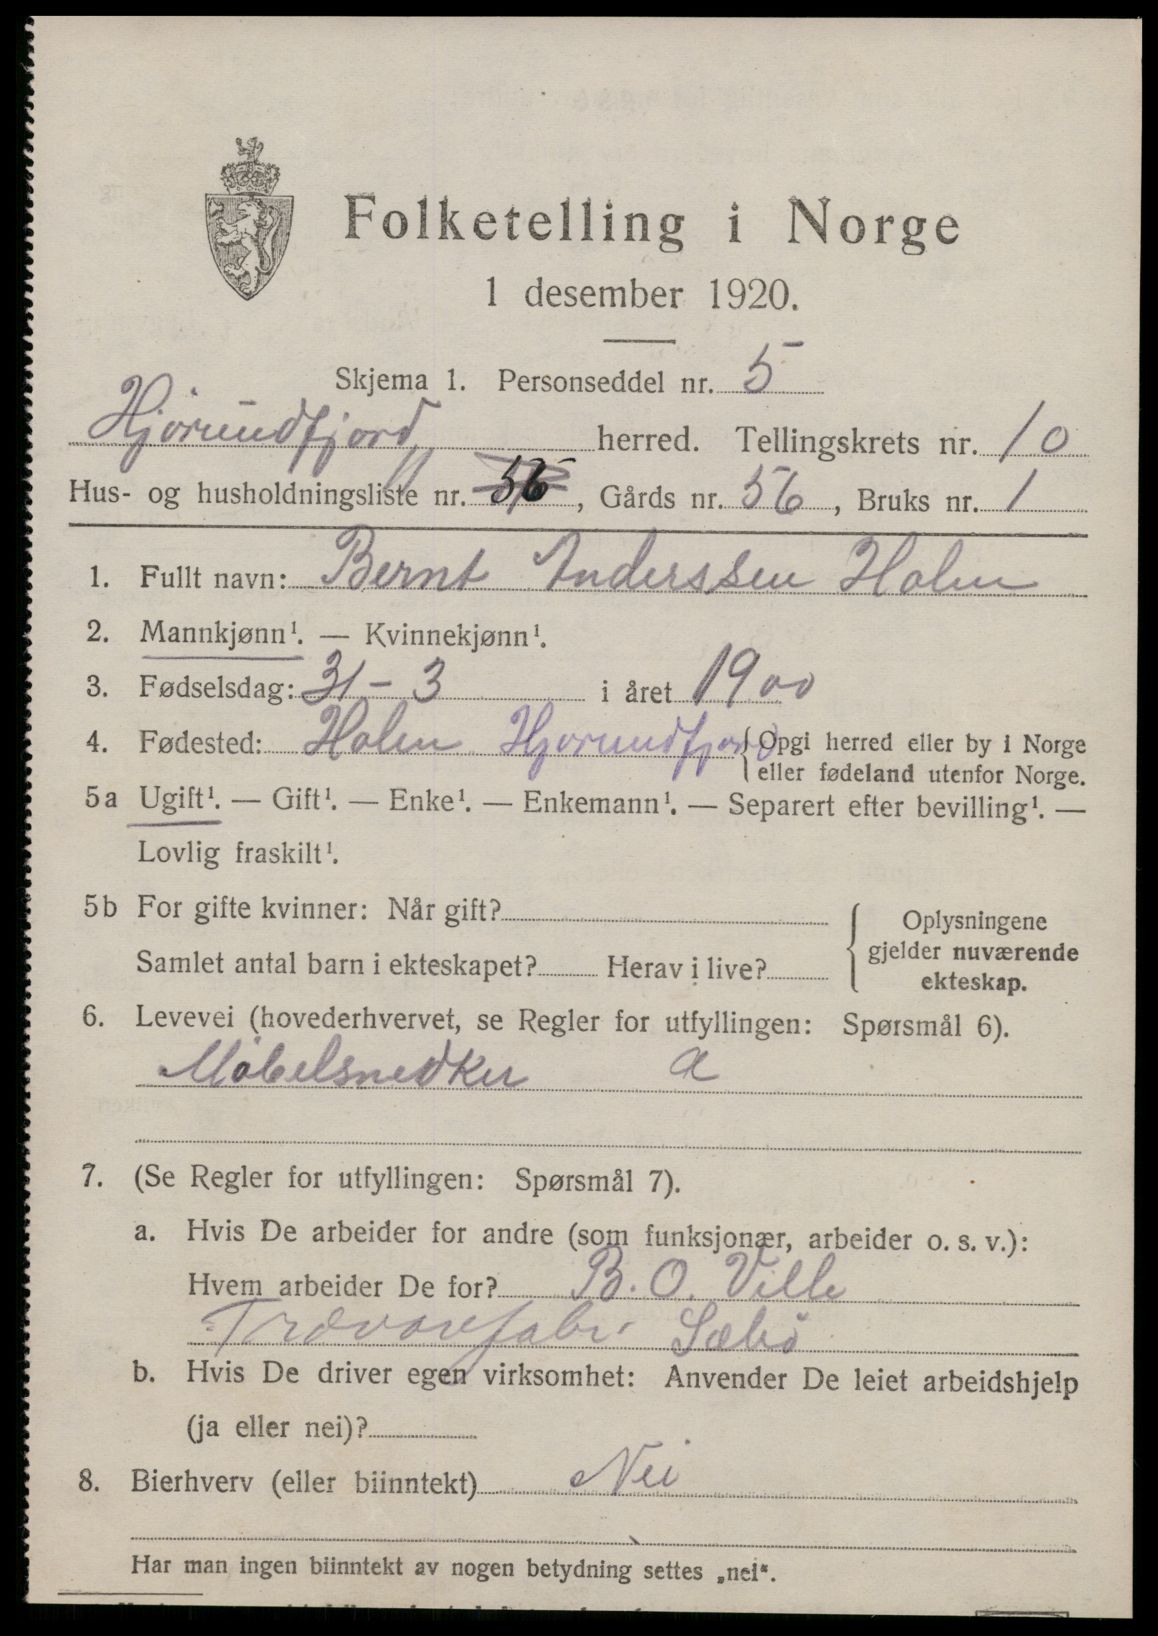 Folketelling i Norge
1 desember 1920.
Skjema 1. Personseddel nr. 5
Hjørundfjord herred. Tellingskrets nr. 10
Hus- og husholdningsliste nr. 56, Gårds nr. 56, Bruks nr. 1
1. Fullt navn: Bernt Anderssen Holm
2. Mannkjønn¹. — Kvinnekjønn¹.
3. Fødselsdag: 31 - 3 i året 1900
4. Fødested: Holm Hjørundfjord { Opgi herred eller by i Norge
eller fødeland utenfor Norge.
5a Ugift¹. — Gift¹. — Enke¹. — Enkemann¹. — Separert efter bevilling¹. —
Lovlig fraskilt¹.
5b For gifte kvinner: Når gift?
Samlet antal barn i ekteskapet? Herav i live?
{ Oplysningene
gjelder nuværende
ekteskap.
6. Levevei (hovederhvervet, se Regler for utfyllingen: Spørsmål 6).
Møbelsnedker a
7. (Se Regler for utfyllingen: Spørsmål 7).
a. Hvis De arbeider for andre (som funksjonær, arbeider o. s. v.):
Hvem arbeider De for? B. O. Ville
Trævarefabr. Sæbø
b. Hvis De driver egen virksomhet: Anvender De leiet arbeidshjelp
(ja eller nei)?
8. Bierhverv (eller biinntekt) Nei
Har man ingen biinntekt av nogen betydning settes „nei“.